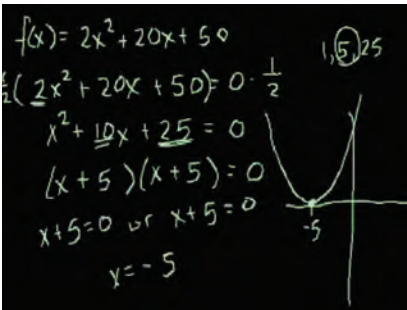 f(x) = 2x² + 20x + 50
1, 5, 25
½(2x² + 20x + 50) = 0 · ½
x² + 10x + 25 = 0
(x + 5)(x + 5) = 0
x + 5 = 0 or x + 5 = 0
x = -5
-5